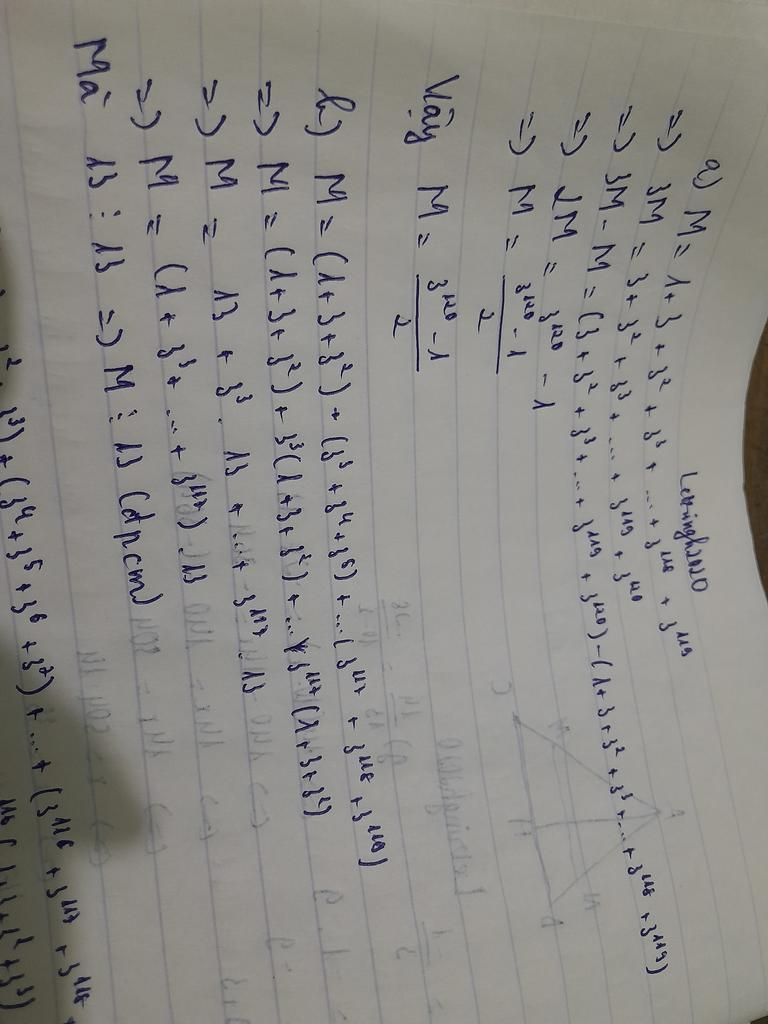 Letningh2020
a) M = 1 + 3 + 3² + 3³ + ... + 3¹¹⁸ + 3¹¹⁹
=> 3M = 3 + 3² + 3³ + ... + 3¹¹⁹ + 3¹²⁰
=> 3M - M = (3 + 3² + 3³ + ... + 3¹¹⁹ + 3¹²⁰) - (1 + 3 + 3² + 3³ + ... + 3¹¹⁸ + 3¹¹⁹)
=> 2M = 3¹²⁰ - 1
=> M = (3¹²⁰ - 1)/2
Vậy M = (3¹²⁰ - 1)/2
b) M = (1 + 3 + 3²) + (3³ + 3⁴ + 3⁵) + ... (3¹¹⁷ + 3¹¹⁸ + 3¹¹⁹)
=> M = (1 + 3 + 3²) + 3³(1 + 3 + 3²) + ... + 3¹¹⁷(1 + 3 + 3²)
=> M = 13 + 3³ . 13 + ... + 3¹¹⁷ . 13
=> M = (1 + 3³ + ... + 3¹¹⁷) . 13
Mà 13 ⋮ 13 => M ⋮ 13 (đpcm)
3³) + (3⁴ + 3⁵ + 3⁶ + 3⁷) + ... + (3¹¹⁶ + 3¹¹⁷ + 3¹¹⁸ +